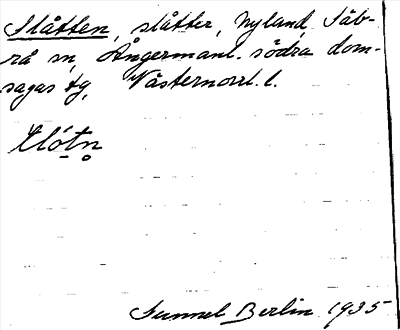 Slåtten, slåtter, Nyland, Säb-
rå sn, Ångermanl. södra dom-
sagas tg, Västernorrl. l.
Sunnel Berlin 1935